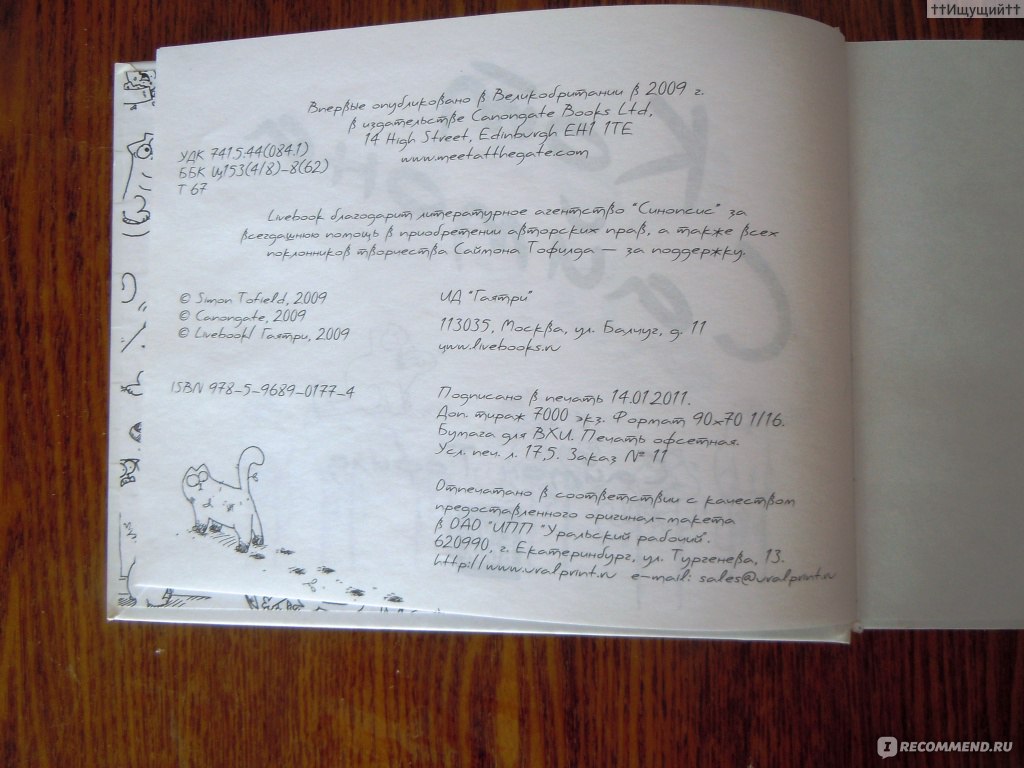 ††Ищущий††
Впервые опубликовано в Великобритании в 2009 г.
в издательстве Canongate Books Ltd,
14 High Street, Edinburgh EH1 1TE
www.meetatthegate.com
УДК 741.5.44(084.1)
ББК Щ153(4/8)-8(62)
Т 67
Livebook благодарит литературное агентство "Синопсис" за
всегдашнюю помощь в приобретении авторских прав, а также всех
поклонников творчества Саймона Тофилда — за поддержку.
© Simon Tofield, 2009
© Canongate, 2009
© Livebook/ Гаятри, 2009
ISBN 978-5-9689-0177-4
ИД "Гаятри"
113035, Москва, ул. Балчуг, д. 11
www.livebooks.ru
Подписано в печать 14.01.2011.
Доп. тираж 7000 экз. Формат 90x70 1/16.
Бумага для ВХИ. Печать офсетная.
Усл. печ. л. 17,5. Заказ № 11
Отпечатано в соответствии с качеством
предоставленного оригинал-макета
в ОАО "ИПП "Уральский рабочий".
620990, г. Екатеринбург, ул. Тургенева, 13.
http://www.uralprint.ru e-mail: sales@uralprint.ru
Кот
Саймона
IRECOMMEND.RU